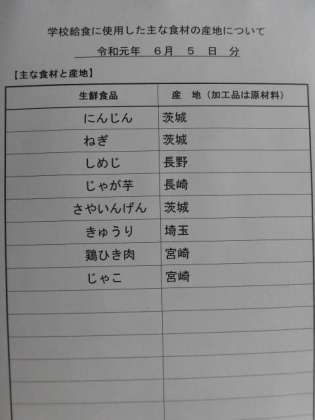 学校給食に使用した主な食材の産地について
令和元年 6月 5 日 分
【主な食材と産地】
生鮮食品 産 地（加工品は原材料）
にんじん 茨城
ねぎ 茨城
しめじ 長野
じゃが芋 長崎
さやいんげん 茨城
きゅうり 埼玉
鶏ひき肉 宮崎
じゃこ 宮崎